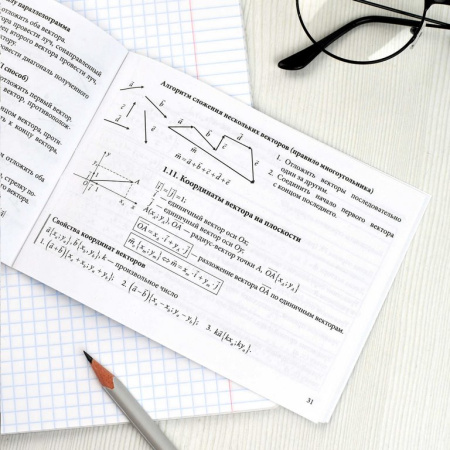 лу параллелограмма
отложить оба вектора.
ора провести луч, сонаправленный
ец второго вектора провести луч,
ктору.
ровести диагональ полученного
I способ)
отложить первый вектор.
вектор, противополож-
ом вектора, проти-
ь к концу вектора,
м отложить оба
стрелку по-
го вектора
Алгоритм сложения нескольких векторов (правило многоугольника)
1. Отложить векторы последовательно
один за другим.
2. Соединить начало первого вектора
с концом последнего.
m = a + b + c + d + e
1.11. Координаты вектора на плоскости
|i| = |j| = 1;
i — единичный вектор оси Ox;
j — единичный вектор оси Oy;
A(x₀; y₀), OA — радиус-вектор точки A, OA{x₀; y₀}
OA = x₀ · i + y₀ · j — разложение вектора OA по единичным векторам.
m{x₀; y₀} ⇔ m = x₀ · i + y₀ · j
Свойства координат векторов
k — произвольное число
31